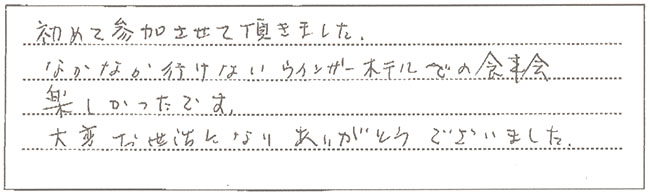 初めて参加させて頂きました。
なかなか行けないウインザーホテルでの食事会
楽しかったです。
大変お世話になりありがとうございました。